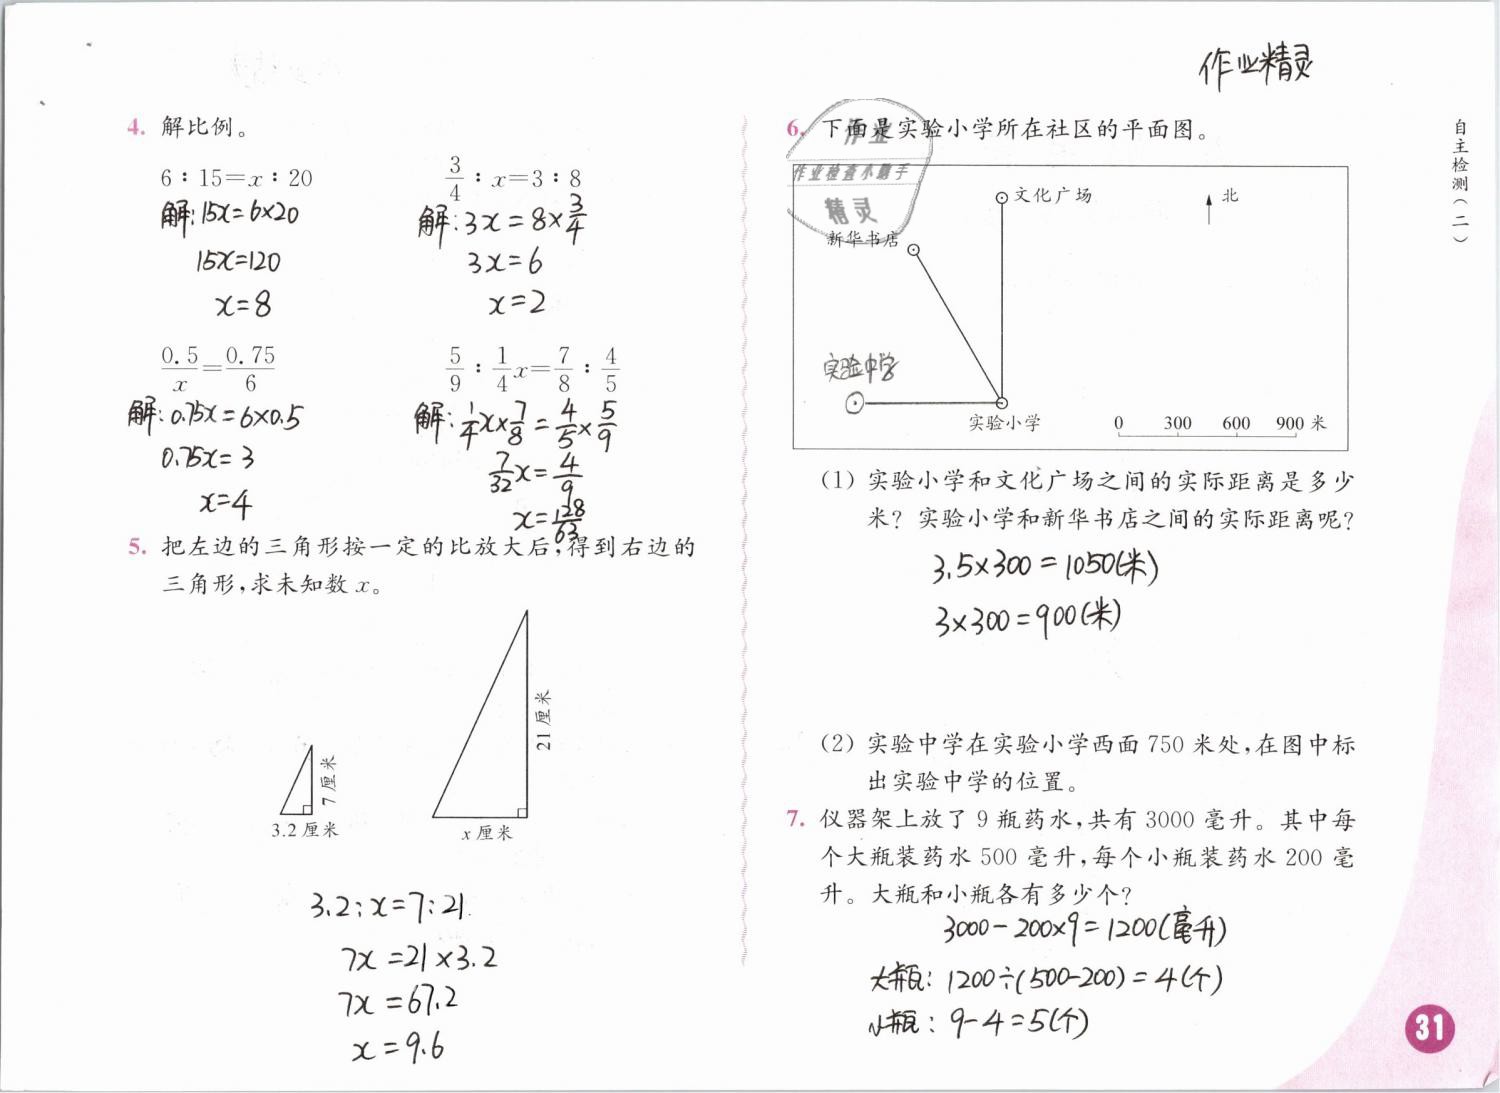 作业精灵
自主检测(二)
4. 解比例。
6：15=x：20
解：15x=6×20
15x=120
x=8
3/4：x=3：8
解：3x=8×3/4
3x=6
x=2
0.5/x=0.75/6
解：0.75x=6×0.5
0.75x=3
x=4
5/9：1/4x=7/8：4/5
解：1/4x×7/8=4/5×5/9
7/32x=4/9
x=128/63
5. 把左边的三角形按一定的比放大后,得到右边的
三角形,求未知数 x。
7厘米
3.2厘米
21厘米
x厘米
3.2：x=7：21
7x=21×3.2
7x=67.2
x=9.6
6. 下面是实验小学所在社区的平面图。
作业
作业检查小助手
精灵
文化广场
北
新华书店
实验中学
实验小学
0 300 600 900 米
(1) 实验小学和文化广场之间的实际距离是多少
米? 实验小学和新华书店之间的实际距离呢?
3.5×300=1050(米)
3×300=900(米)
(2) 实验中学在实验小学西面 750 米处,在图中标
出实验中学的位置。
7. 仪器架上放了 9 瓶药水,共有 3000 毫升。其中每
个大瓶装药水 500 毫升,每个小瓶装药水 200 毫
升。大瓶和小瓶各有多少个?
3000-200×9=1200(毫升)
大瓶：1200÷(500-200)=4(个)
小瓶：9-4=5(个)
31